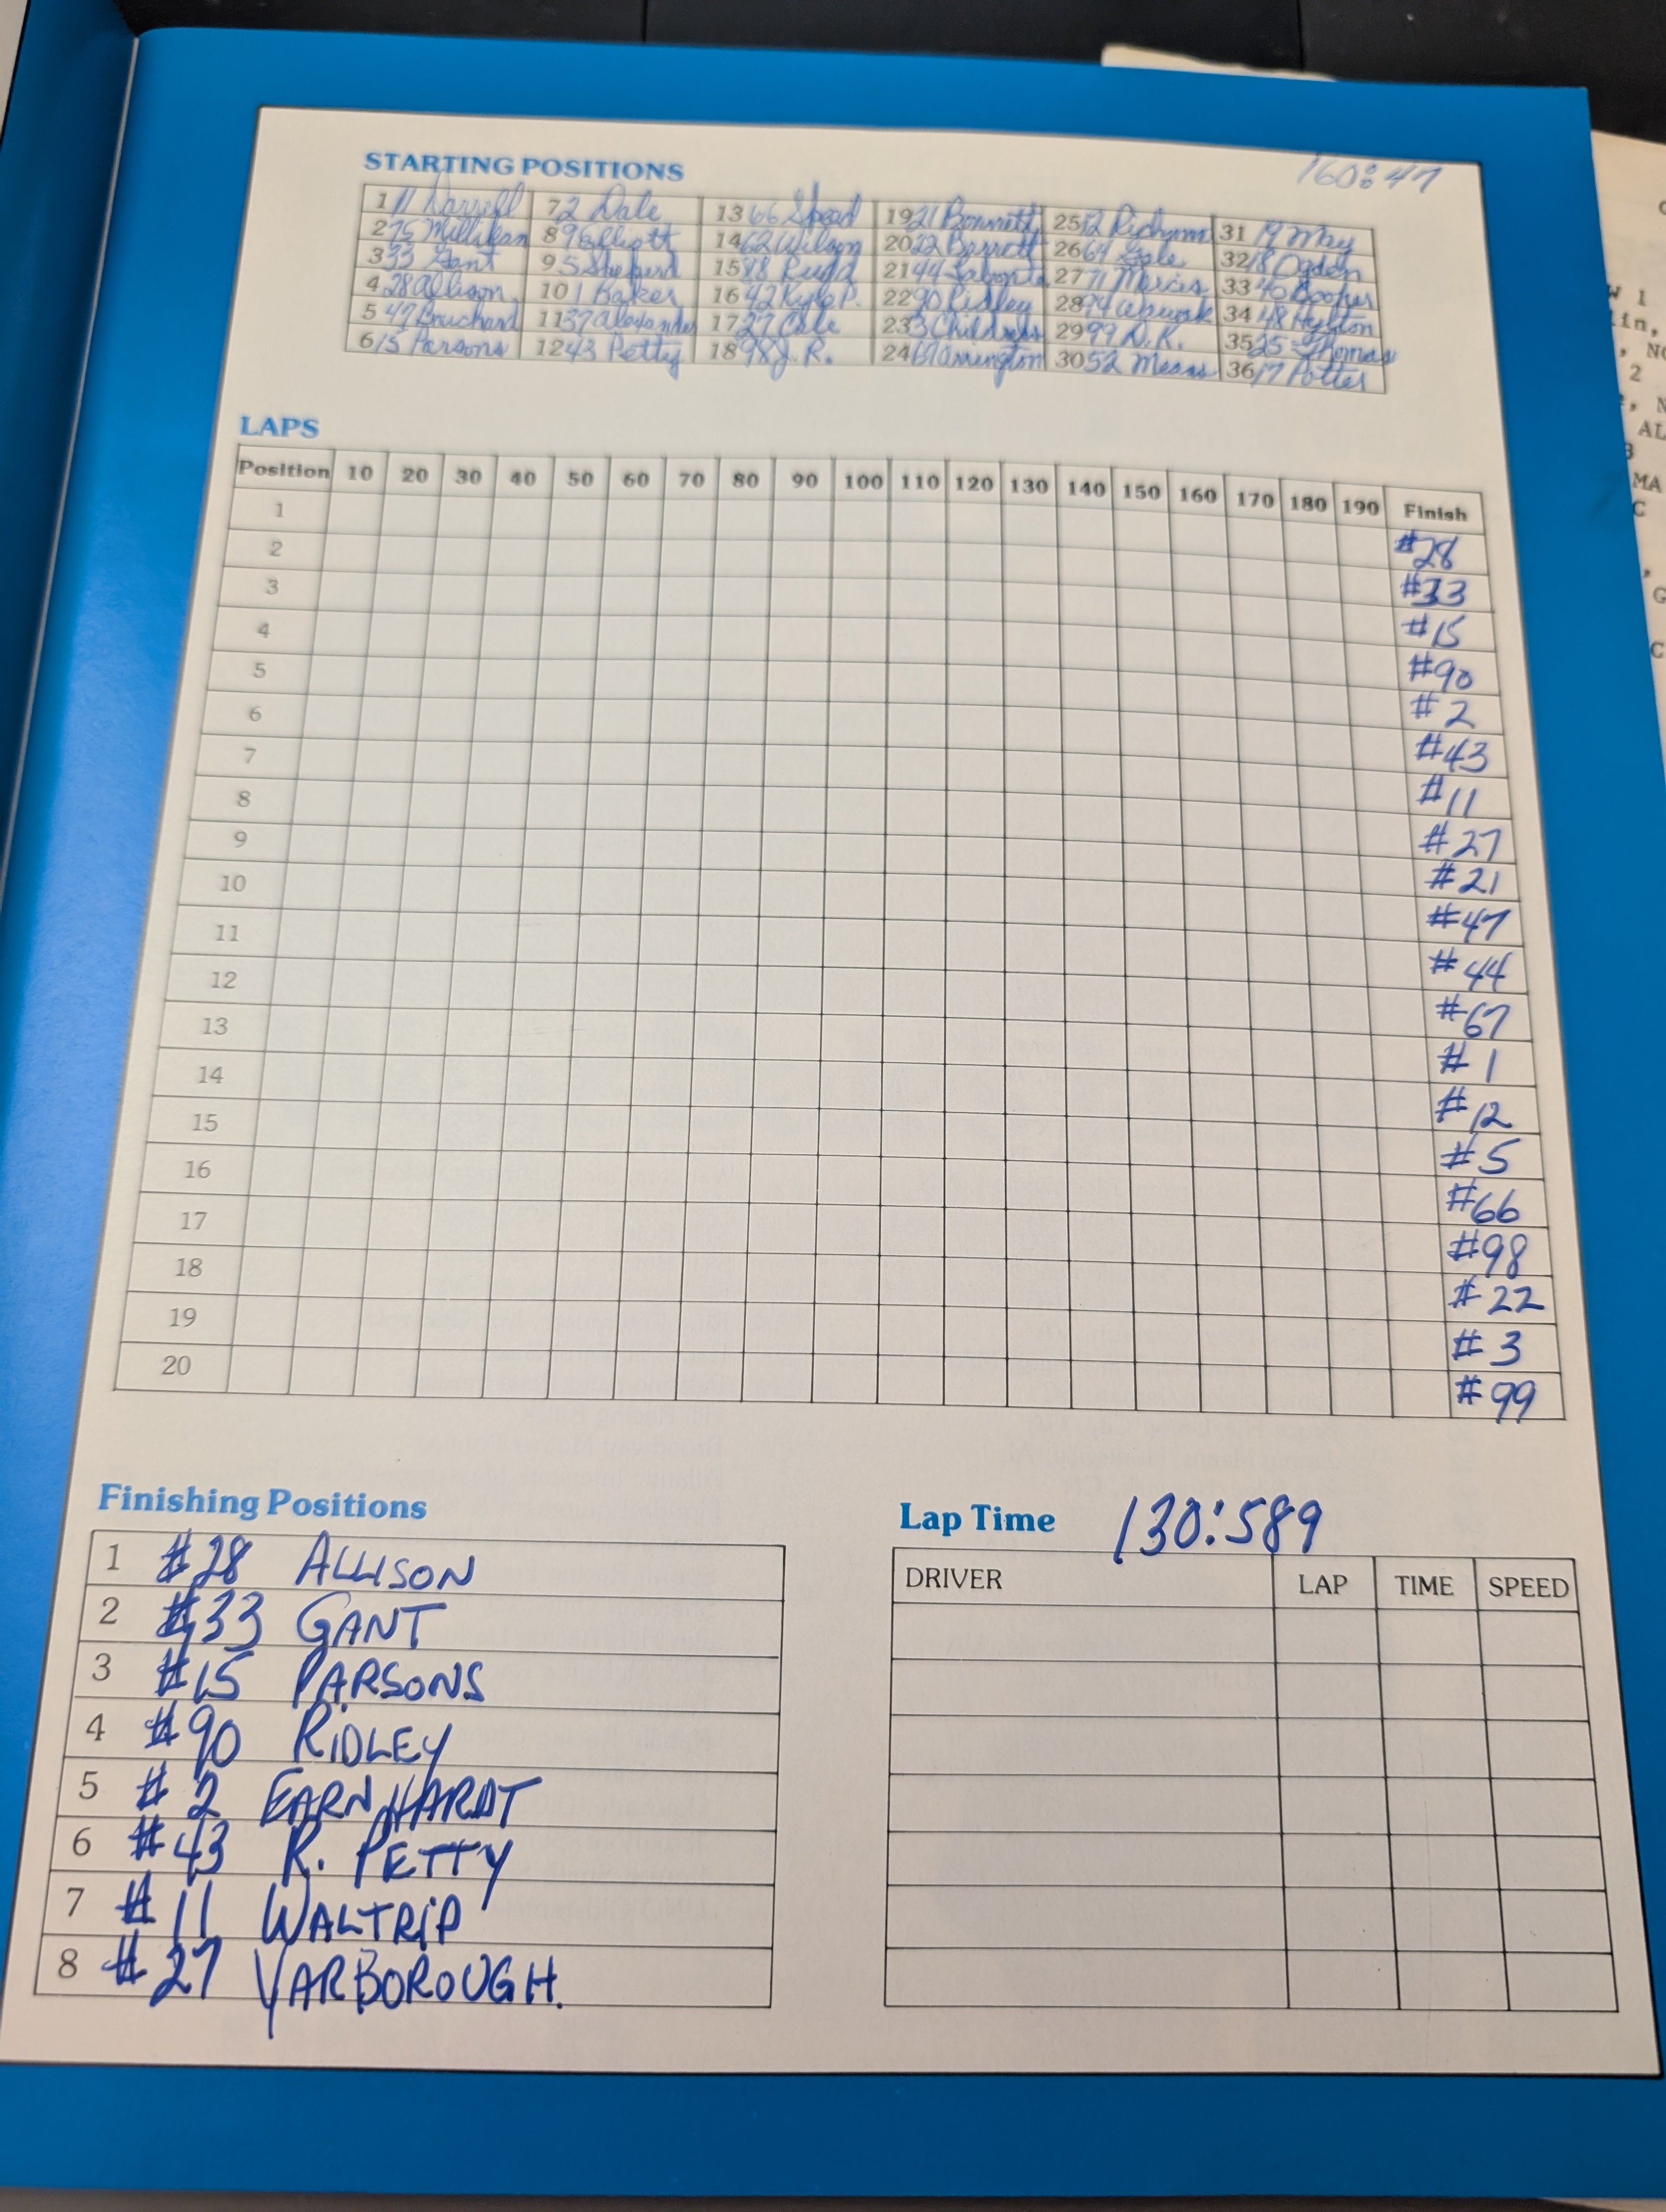 160:47
STARTING POSITIONS
1 11 Darrell 7 2 Dale 13 66 Speed 19 21 Bonnett 25 12 Richmond 31 19 May
2 75 Millikan 8 9 Elliott 14 62 Wilson 20 22 Barrett 26 64 Gale 32 18 Ogden
3 33 Gant 9 5 Sheperd 15 88 Rudd 21 44 Labonte 27 71 Marcis 33 40 Cooper
4 28 Allison 10 1 Baker 16 42 Kyle P. 22 90 Ridley 28 94 34 48 Hylton
5 47 Bouchard 11 37 Alexander 17 27 Cale 23 3 Childress 29 99 D.K. 35 25 Thomas
6 15 Parsons 12 43 Petty 18 98 J.R. 24 67 Arrington 30 52 Means 36 17 Potter
LAPS
Position 10 20 30 40 50 60 70 80 90 100 110 120 130 140 150 160 170 180 190 Finish
1 #28
2 #33
3 #15
4 #90
5 #2
6 #43
7 #11
8 #27
9 #21
10 #47
11 #44
12 #67
13 #1
14 #12
15 #5
16 #66
17 #98
18 #22
19 #3
20 #99
Finishing Positions
1 #28 ALLISON
2 #33 GANT
3 #15 PARSONS
4 #90 RIDLEY
5 #2 EARNHARDT
6 #43 R. PETTY
7 #11 WALTRIP
8 #27 YARBOROUGH.
Lap Time 130:589
DRIVER LAP TIME SPEED